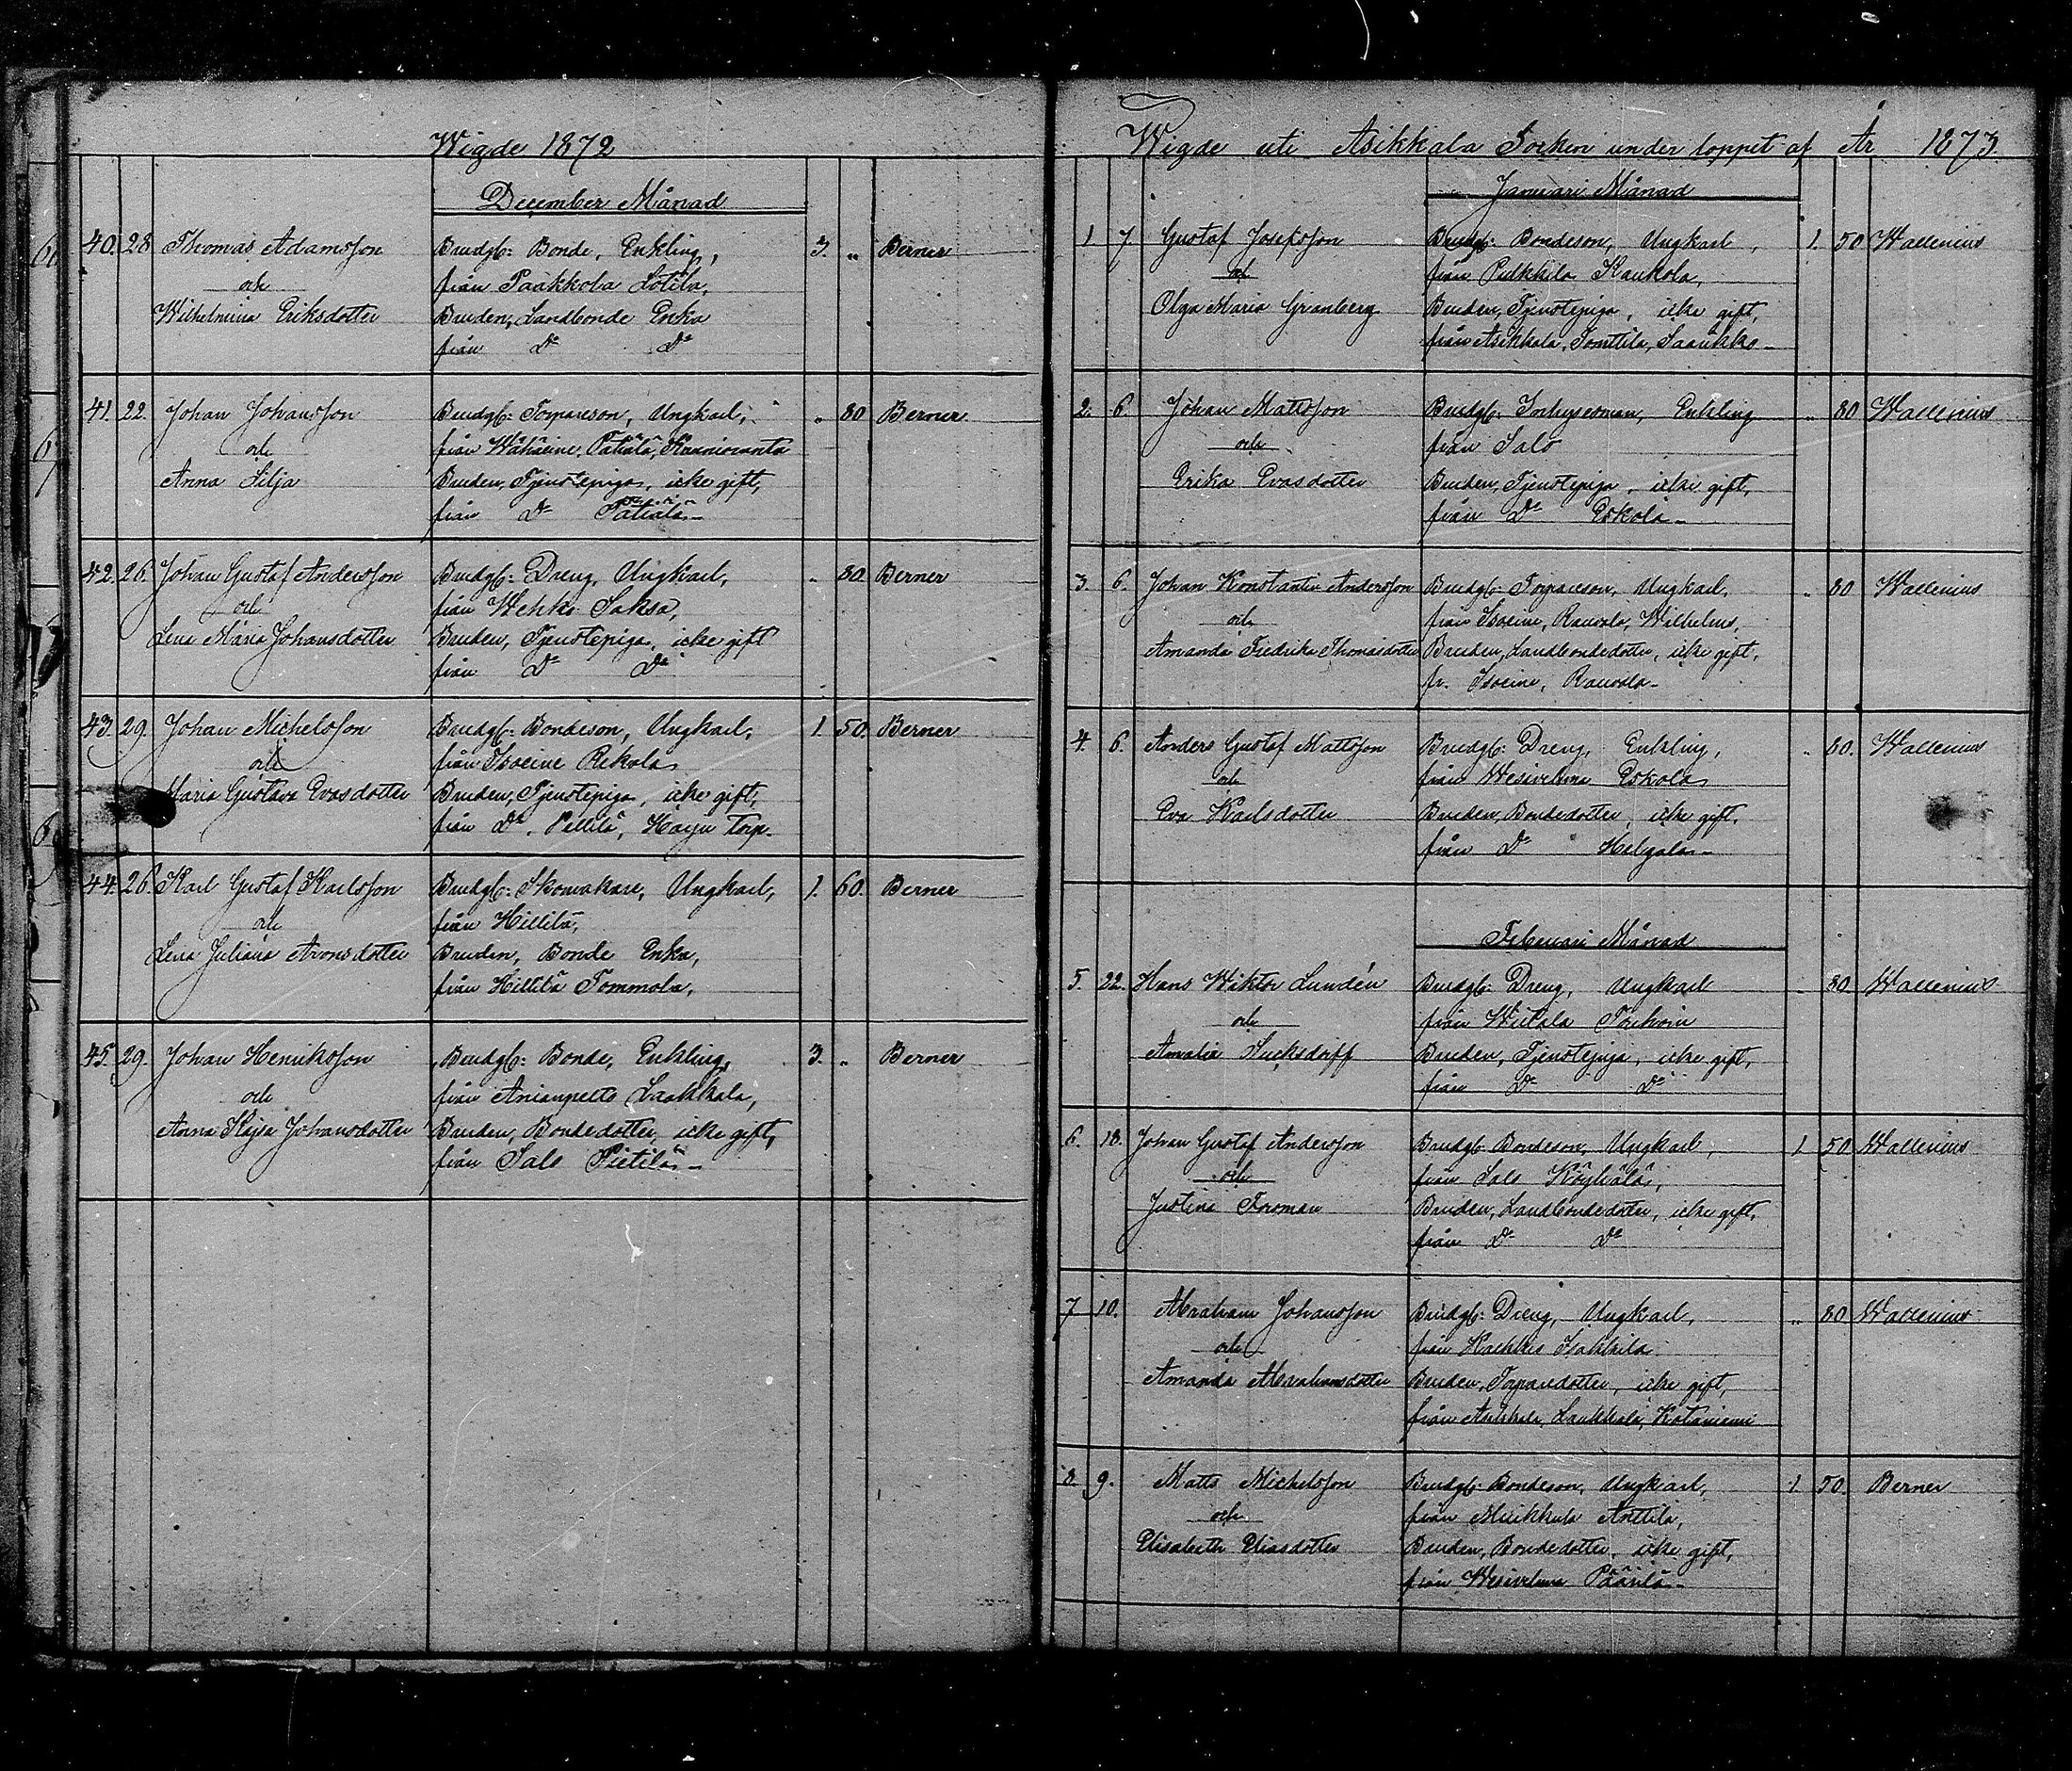 Wigde 1872
December Månad
40. 28. Thomas Adamsson Brudg: Bonde, Enkling, 3. „ Berner
och från Paakkola Lotila,
Wilhelmina Eriksdotter Bruden, Landbonde Enka
från Do Do
41. 22. Johan Johansson Brudg: Torpareson, Ungkarl, „ 80 Berner
och från Wähäeine, Pätiälä,
Anna Silja Bruden, Tjenstepiga, icke gift,
från Do Pätiälä
42. 26. Johan Gustaf Andersson Brudg: Dreng, Ungkarl, „ 80 Berner
och från Wehko Saksa,
Lena Maria Johansdotter Bruden, Tjenstepiga, icke gift
från Do Do
43. 29. Johan Michelsson Brudg: Bondeson, Ungkarl, 1. 50. Berner
och från Isoeine Rekola
Maria Gustava Evasdotter Bruden, Tjenstepiga, icke gift,
från Do. Pellilä, Harju Torp.
44. 26. Karl Gustaf Karlsson Brudg: Skomakare, Ungkarl, 1. 60. Berner
och från Hillilä,
Lena Juliana Aronsdotter Bruden, Bonde Enka,
från Hillilä Tommola,
45. 29. Johan Henriksson Brudg: Bonde, Enkling, 3. „ Berner
och från Anianpelto Laakkala,
Anna Kajsa Johansdotter Bruden, Bondedotter, icke gift,
från Salo Pietilä
Wigde uti Asikkala Socken under loppet af År 1873.
Januari Månad
1. 7. Gustaf Josefsson Brudg: Bondeson, Ungkarl, 1. 50 Wallenius
och från Pulkkila Kaukola,
Olga Maria Granberg Bruden, Tjenstepiga, icke gift,
från Asikkala, Tomttila, Saarikko
2. 6. Johan Mattsson Brudg: Inhysesman, Enkling „ 80 Wallenius
och från Salo
Erika Evasdotter Bruden, Tjenstepiga, icke gift,
från Do Eskola
3. 6. Johan Konstantin Andersson Brudg: Torpareson, Ungkarl, „ 80 Wallenius
och från Isoeine, Rauvola, Wilhelms,
Amanda Fredrika Thomasdotter Bruden, Landbondedotter, icke gift,
fr. Isoeine, Rauvola
4. 6. Anders Gustaf Mattsson Brudg: Dreng, Enkling, „ 80. Wallenius
och från Wesivehma Eskola
Eva Karlsdotter Bruden, Bondedotter, icke gift,
från Do Helgala
Februari Månad
5. 22. Hans Wiktor Lundén Brudg: Dreng, Ungkarl 80. Wallenius
och från
Amalia Sucksdorff Bruden, Tjenstepiga, icke gift,
från Do Do
6. 18. Johan Gustaf Andersson Brudg: Bondeson, Ungkarl, 1 50 Wallenius
och från Salo Köyhälä,
Justina Forsman Bruden, Landbondedotter, icke gift,
från Do Do
7 10. Abraham Johansson Brudg: Dreng, Ungkarl, „ 80 Wallenius
och från Kalkkis Isakkila
Amanda Abrahamsdotter Bruden, Torparedotter, icke gift,
från Asikkala, Laukkala, Kotaniemi
8. 9. Matts Michelsson Brudg: Bondeson, Ungkarl, 1. 50. Berner
och från Muikkula Anttila,
Elisabeth Eliasdotter Bruden, Bondedotter, icke gift,
från Wesivehma Päärilä